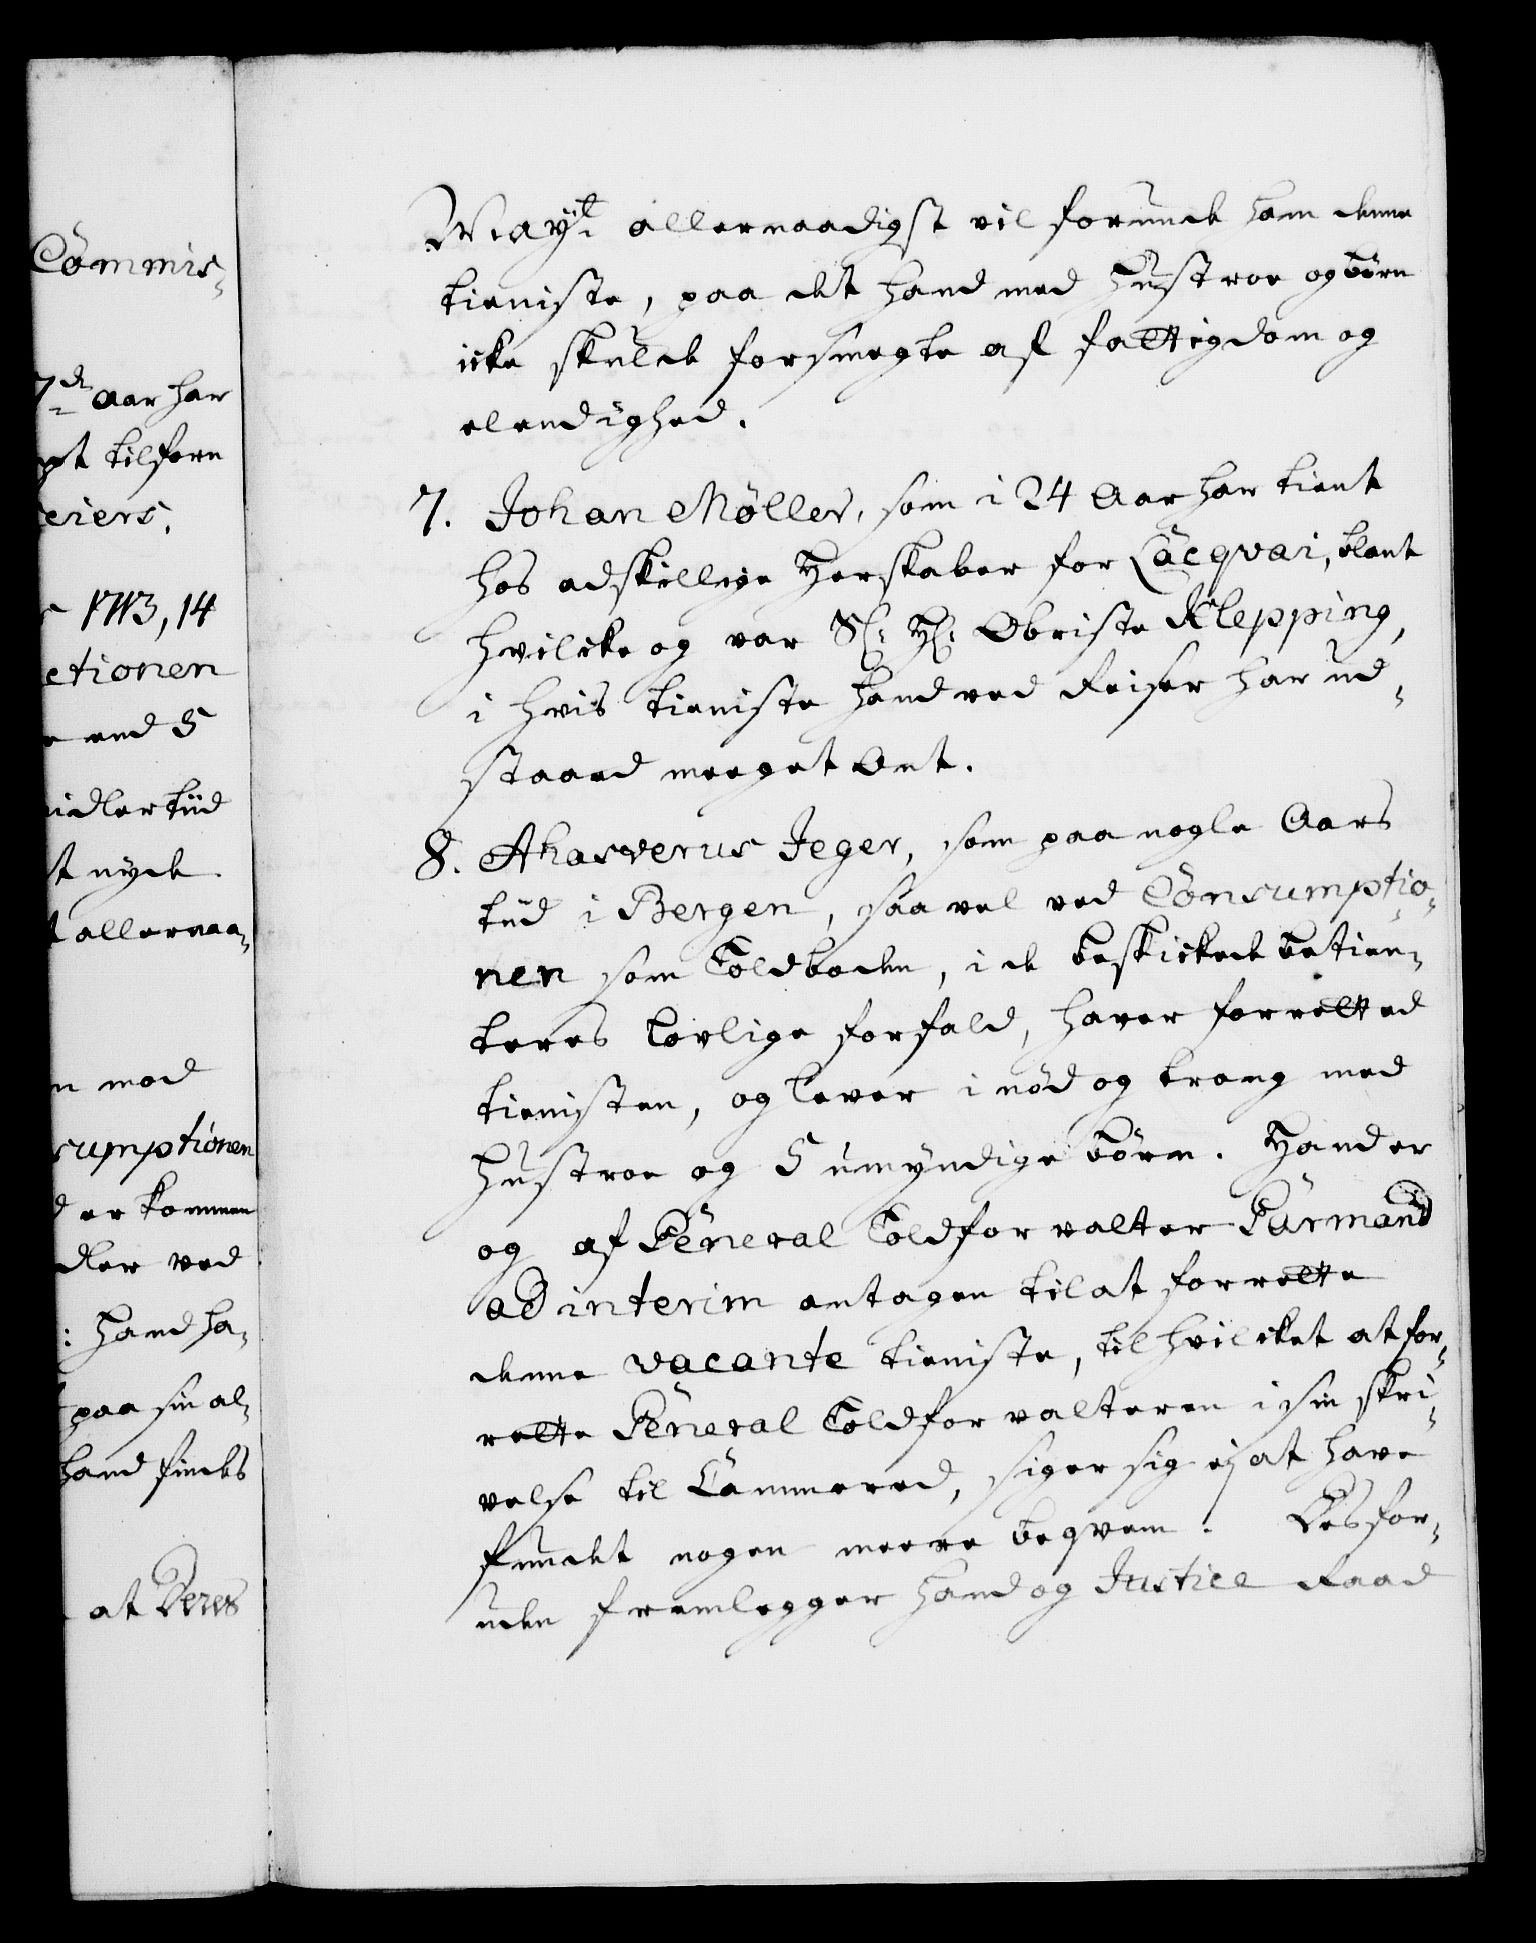 Commis-
7de aar har
pt tilforn
eiers,
1713, 14
ctionen
end 5
idlertiid
t nyde
t allernaa-
n mod
sumptionen
d er kommen
dler ved
: Hand ha-
paa sin al-
hand findes
at Deres
Mayt allernaadigst vil forunde ham denne
tieniste, paa det hand med Hustroe og børn
icke skulde forsmegte af fattigdom og
elendighed.
7. Johan Møller, som i 24 Aar har tient
hos adskillige Herskaber for Lacqvai, blant
hvilcke og var Sl: Hr: Obriste Klepping,
i hvis tieniste hand ved Reiser har ud-
staaed meeget Ont.
8. Ahasverus Jeger, som paa nogle Aars
tiid i Bergen, saa vel ved Consumptio-
nen som Toldboden, i de beskickede betien-
teres lovlige forfald, haver forretted
tienisten, og lever i nød og trang med
Hustroe og 5 umyndige børn. Hand er
og af General Toldforvalter Parmand
ad interim antagen til at forrette
denne vacante tieniste, til hvilcket at for-
rette General Toldforvalteren i sin skri-
velse til Cammered, siger sig ej at have
fundet nogen meere beqvem. Desfor-
uden fremlegger hand og Justice Raad